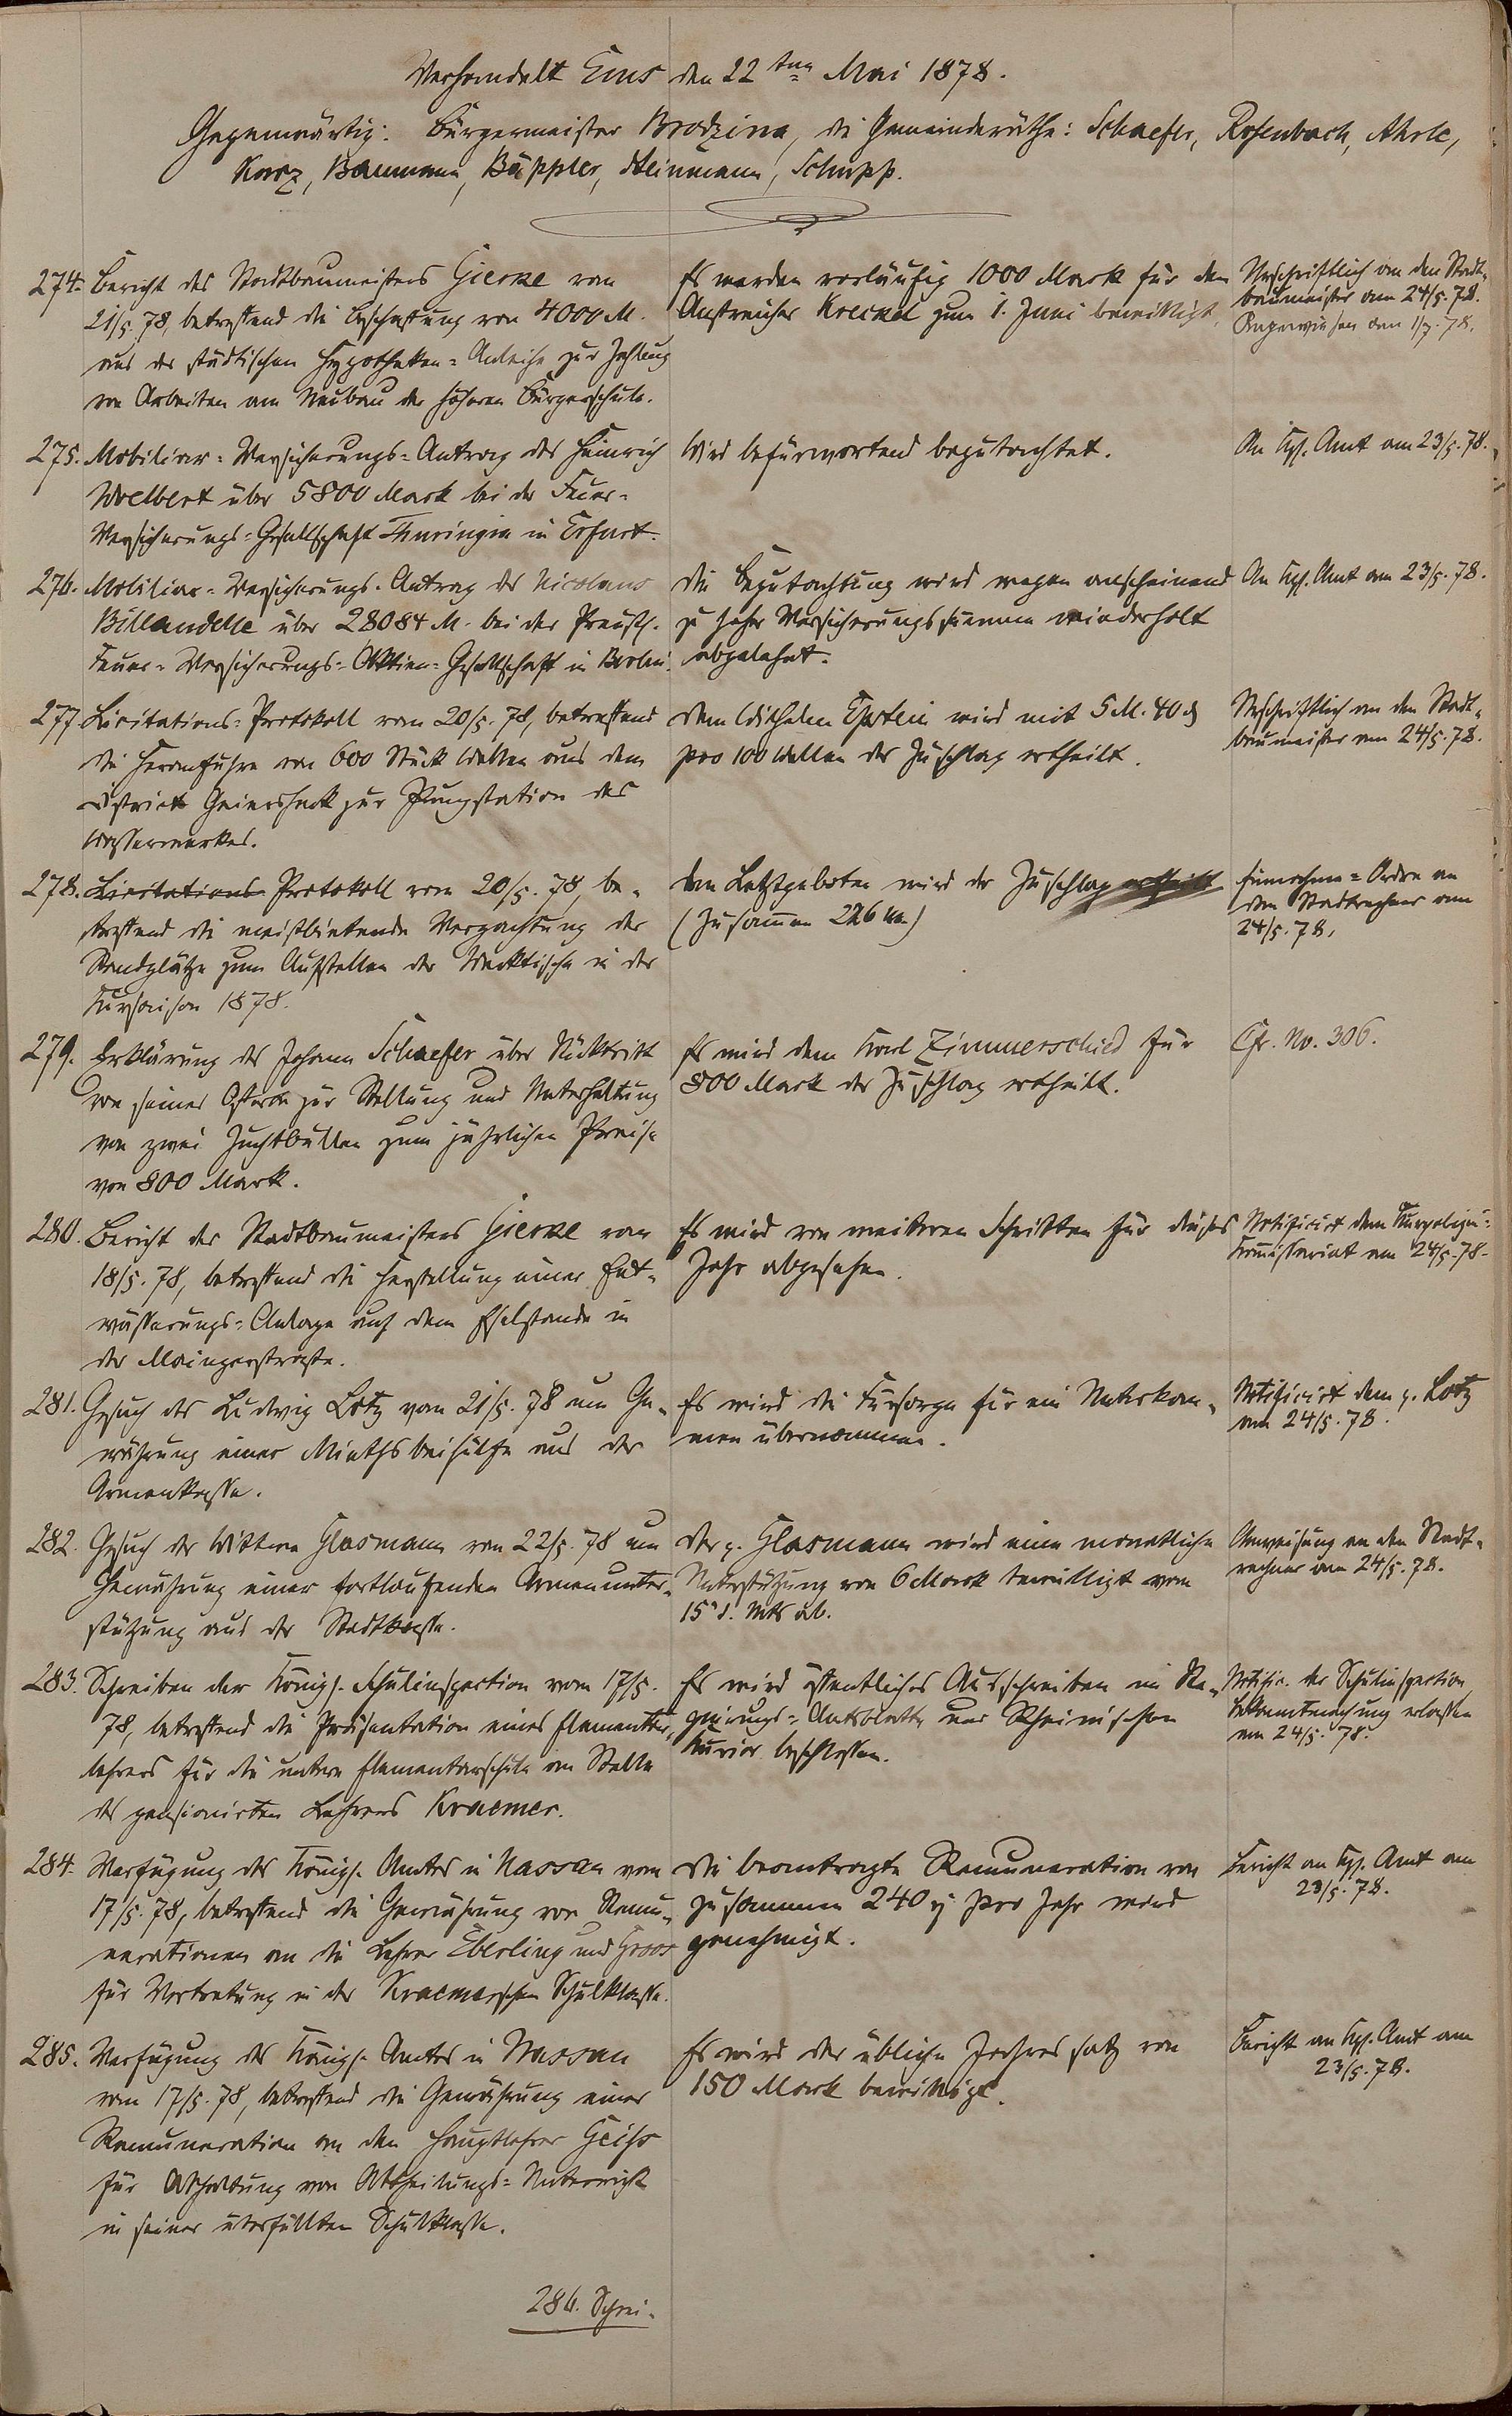 Verhandelt Ems den 22ten Mai 1878.
Gegenwärtig: Bürgermeister Brodzina, die Gemeinderäthe: Schaefer, Rosenbach, Ahrle,
Karz, Baumann, Bäppler, Heinmann, Schupp.
274. Bericht des Stadtbaumeisters Gierke vom
21/5. 78, betreffend die Beschaffung von 4000 M.
aus der städtischen Hypotheken-Anleihe zur Zahlung
von Arbeiten am Neubau der höheren Bürgerschule.
Es werden vorläufig 1000 Mark für den
Anstreicher Kreckel zum 1. Juni bewilligt.
Urschriftlich an den Stadt-
baumeister am 24/5. 78.
Angewiesen am 1/7. 78.
275. Mobiliar-Versicherungs-Antrag des Heinrich
Woelbert über 5800 Mark bei der Feuer-
Versicherungs-Gesellschaft Thuringia in Erfurt.
Wird befürwortend begutachtet.
An Kgl. Amt am 23/5. 78.
276. Mobiliar-Versicherungs-Antrag des Nicolaus
Billaudelle über 28084 M. bei der Preuß.
Feuer-Versicherungs-Aktien-Gesellschaft in Berlin.
Die Begutachtung wird wegen anscheinend
zu hoher Versicherungssummen wiederholt
abgelehnt.
An Kgl. Amt am 23/5. 78.
277. Licitations-Protokoll vom 20/5. 78, betreffend
die Heranfuhre von 600 Stück Wellen aus dem
District Geiershack zur Pumpstation des
Wasserwerkes.
Dem Wilhelm Epstein wird mit 5 M. 40 d
pro 100 Wellen der Zuschlag ertheilt.
Urschriftlich an den Stadt-
baumeister am 24/5. 78.
278. Licitations Protokoll vom 20/5. 78, be-
treffend die meistbietende Verpachtung der
Standplätze zum Aufstellen der Wecktische in der
Kursaison 1878.
Den Letztgeboten wird der Zuschlag ertheilt
(Zusammen 226 M.)
Einnahme-Ordre an
den Stadtrechner am
24/5. 78.
279. Erklärung des Johann Schaefer über Rücktritt
von seiner Offerte zur Stellung und Unterhaltung
von zwei Zuchtbullen zum jährlichen Preise
von 800 Mark.
Es wird dem Karl Zimmerschied für
800 Mark der Zuschlag ertheilt.
Cfr. No. 306.
280. Bericht des Stadtbaumeisters Gierke vom
18/5. 78, betreffend die Herstellung einer Ent-
wässerungs-Anlage auf dem Eselstande in
der Mainzerstraße.
Es wird von weiteren Schritten für dieses
Jahr abgesehen.
Notificirt dem Kurpolizei-
Commissariat am 24/5. 78.
281. Gesuch des Ludwig Lotz vom 21/5. 78 um Ge-
währung einer Miethsbeihülfe aus der
Armenkasse.
Es wird die Fürsorge für ein Unterkom-
men übernommen.
Notificirt dem p. Lotz
am 24/5. 78.
282. Gesuch der Wittwe Glasmann vom 22/5. 78 um
Gewährung einer fortlaufenden Armenunter-
stützung aus der Stadtkasse.
Der p. Glasmann wird eine monatliche
Unterstützung von 6 Mark bewilligt vom
15n d. Mts ab.
Anweisung an den Stadt-
rechner am 24/5. 78.
283. Schreiben der Königl. Schulinspection vom 17/5.
78, betreffend die Präsentation eines Elementar-
lehrers für die untere Elementarschule an Stelle
des pensionirten Lehrers Kraemer.
Es wird öffentliches Ausschreiben im Re-
gierungs-Amtsblatte und Rheinischen
Kurier beschlossen.
Notific. der Schulinspection
Bekanntmachung erlassen
am 24/5. 78.
284. Verfügung des Königl. Amtes in Nassau vom
17/5. 78, betreffend die Gewährung von Remu-
nerationen an die Lehrer Eberling und Groos
für Vertretung in der Kraemerschen Schulklasse.
Die beantragte Remuneration von
zusammen 240 M pro Jahr wird
genehmigt.
Bericht an Kgl. Amt am
23/5. 78.
285. Verfügung des Königl. Amtes in Nassau
vom 17/5. 78, betreffend die Gewährung einer
Remuneration an den Hauptlehrer Geiß
für Abhaltung von Abtheilungs-Unterricht
in seiner überfüllten Schulklasse.
Es wird der übliche Jahressatz von
150 Mark bewilligt.
Bericht an Kgl. Amt am
23/5. 78.
286. Schrei-